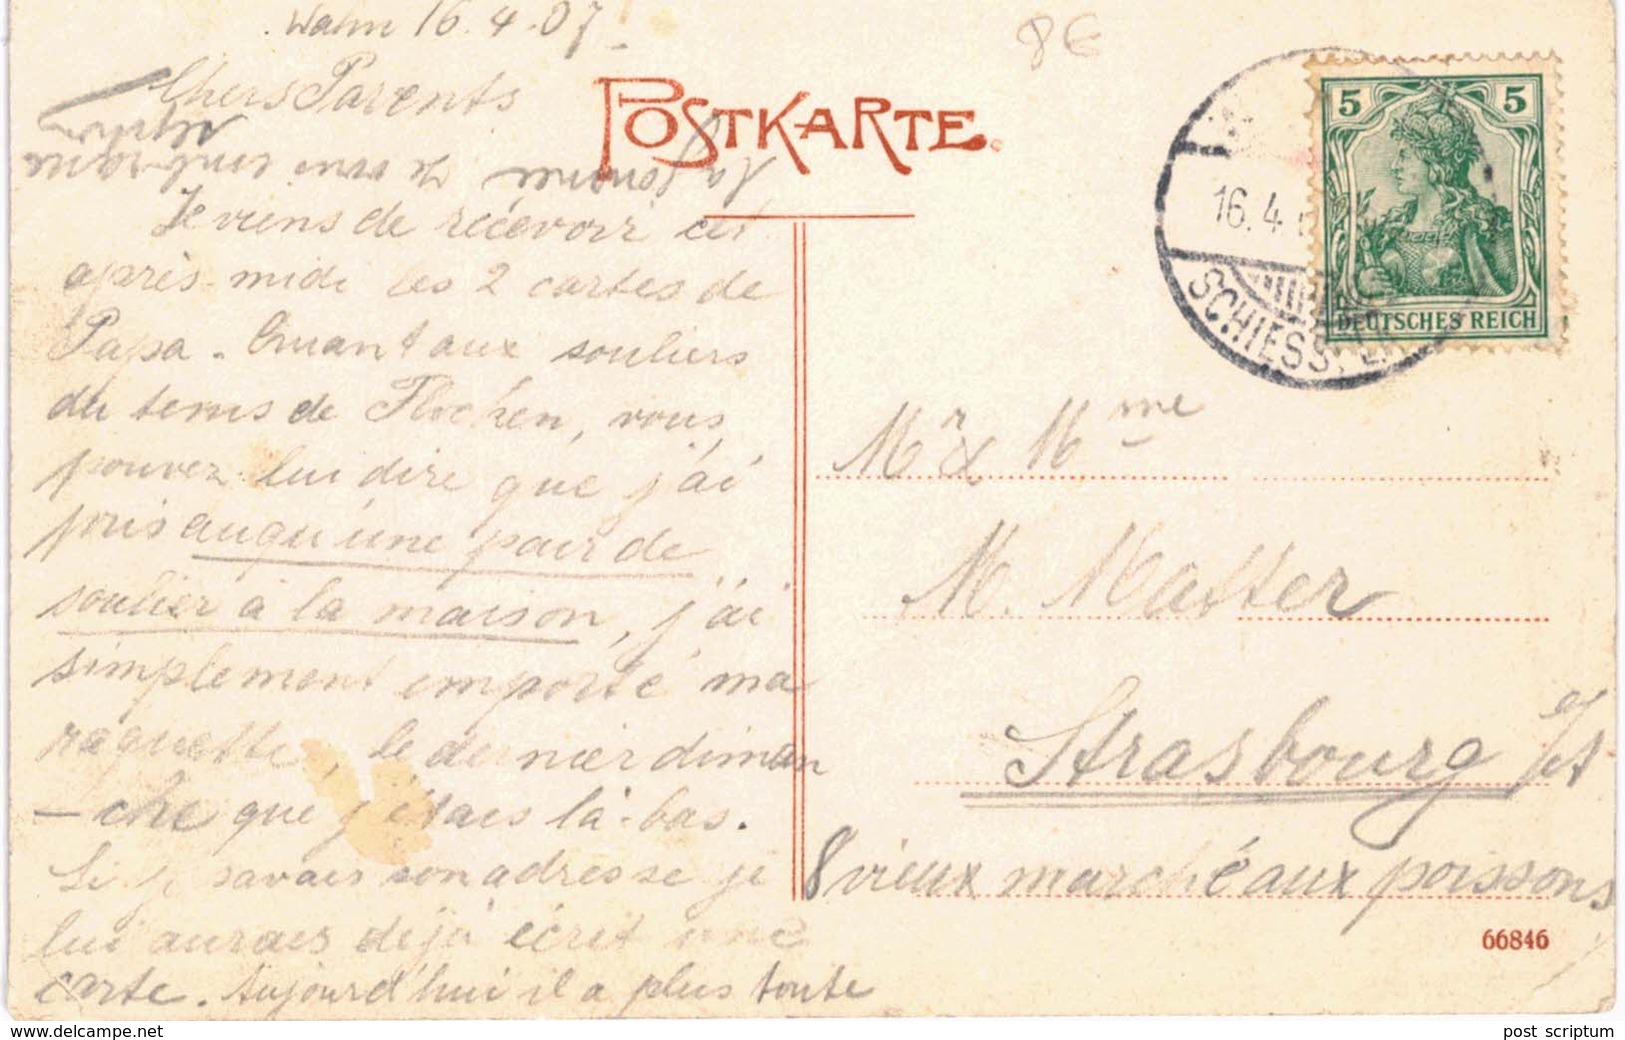 Wahn 16.4.07.
8€
Chers Parents
POSTKARTE.
5 5
DEUTSCHES REICH
16.4.
SCHIESS
Je viens de récevoir cet
après-midi les 2 cartes de
Papa. Quant aux souliers
du tems de Flochen, vous
pouvez lui dire que j'ai
pris auqu'une pair de
soulier à la maison, j'ai
simplement emporté ma
raquette, le dernier diman
-che que j'étais là-bas.
Si je savais son adresse je
lui aurais déjà écrit une
carte. Aujourd'hui il a plus toute
la journée Je vous embrasse
Mr & Mme
M. Matter
Strasbourg
8 vieux marché aux poissons
66846
www.delcampe.net
post scriptum